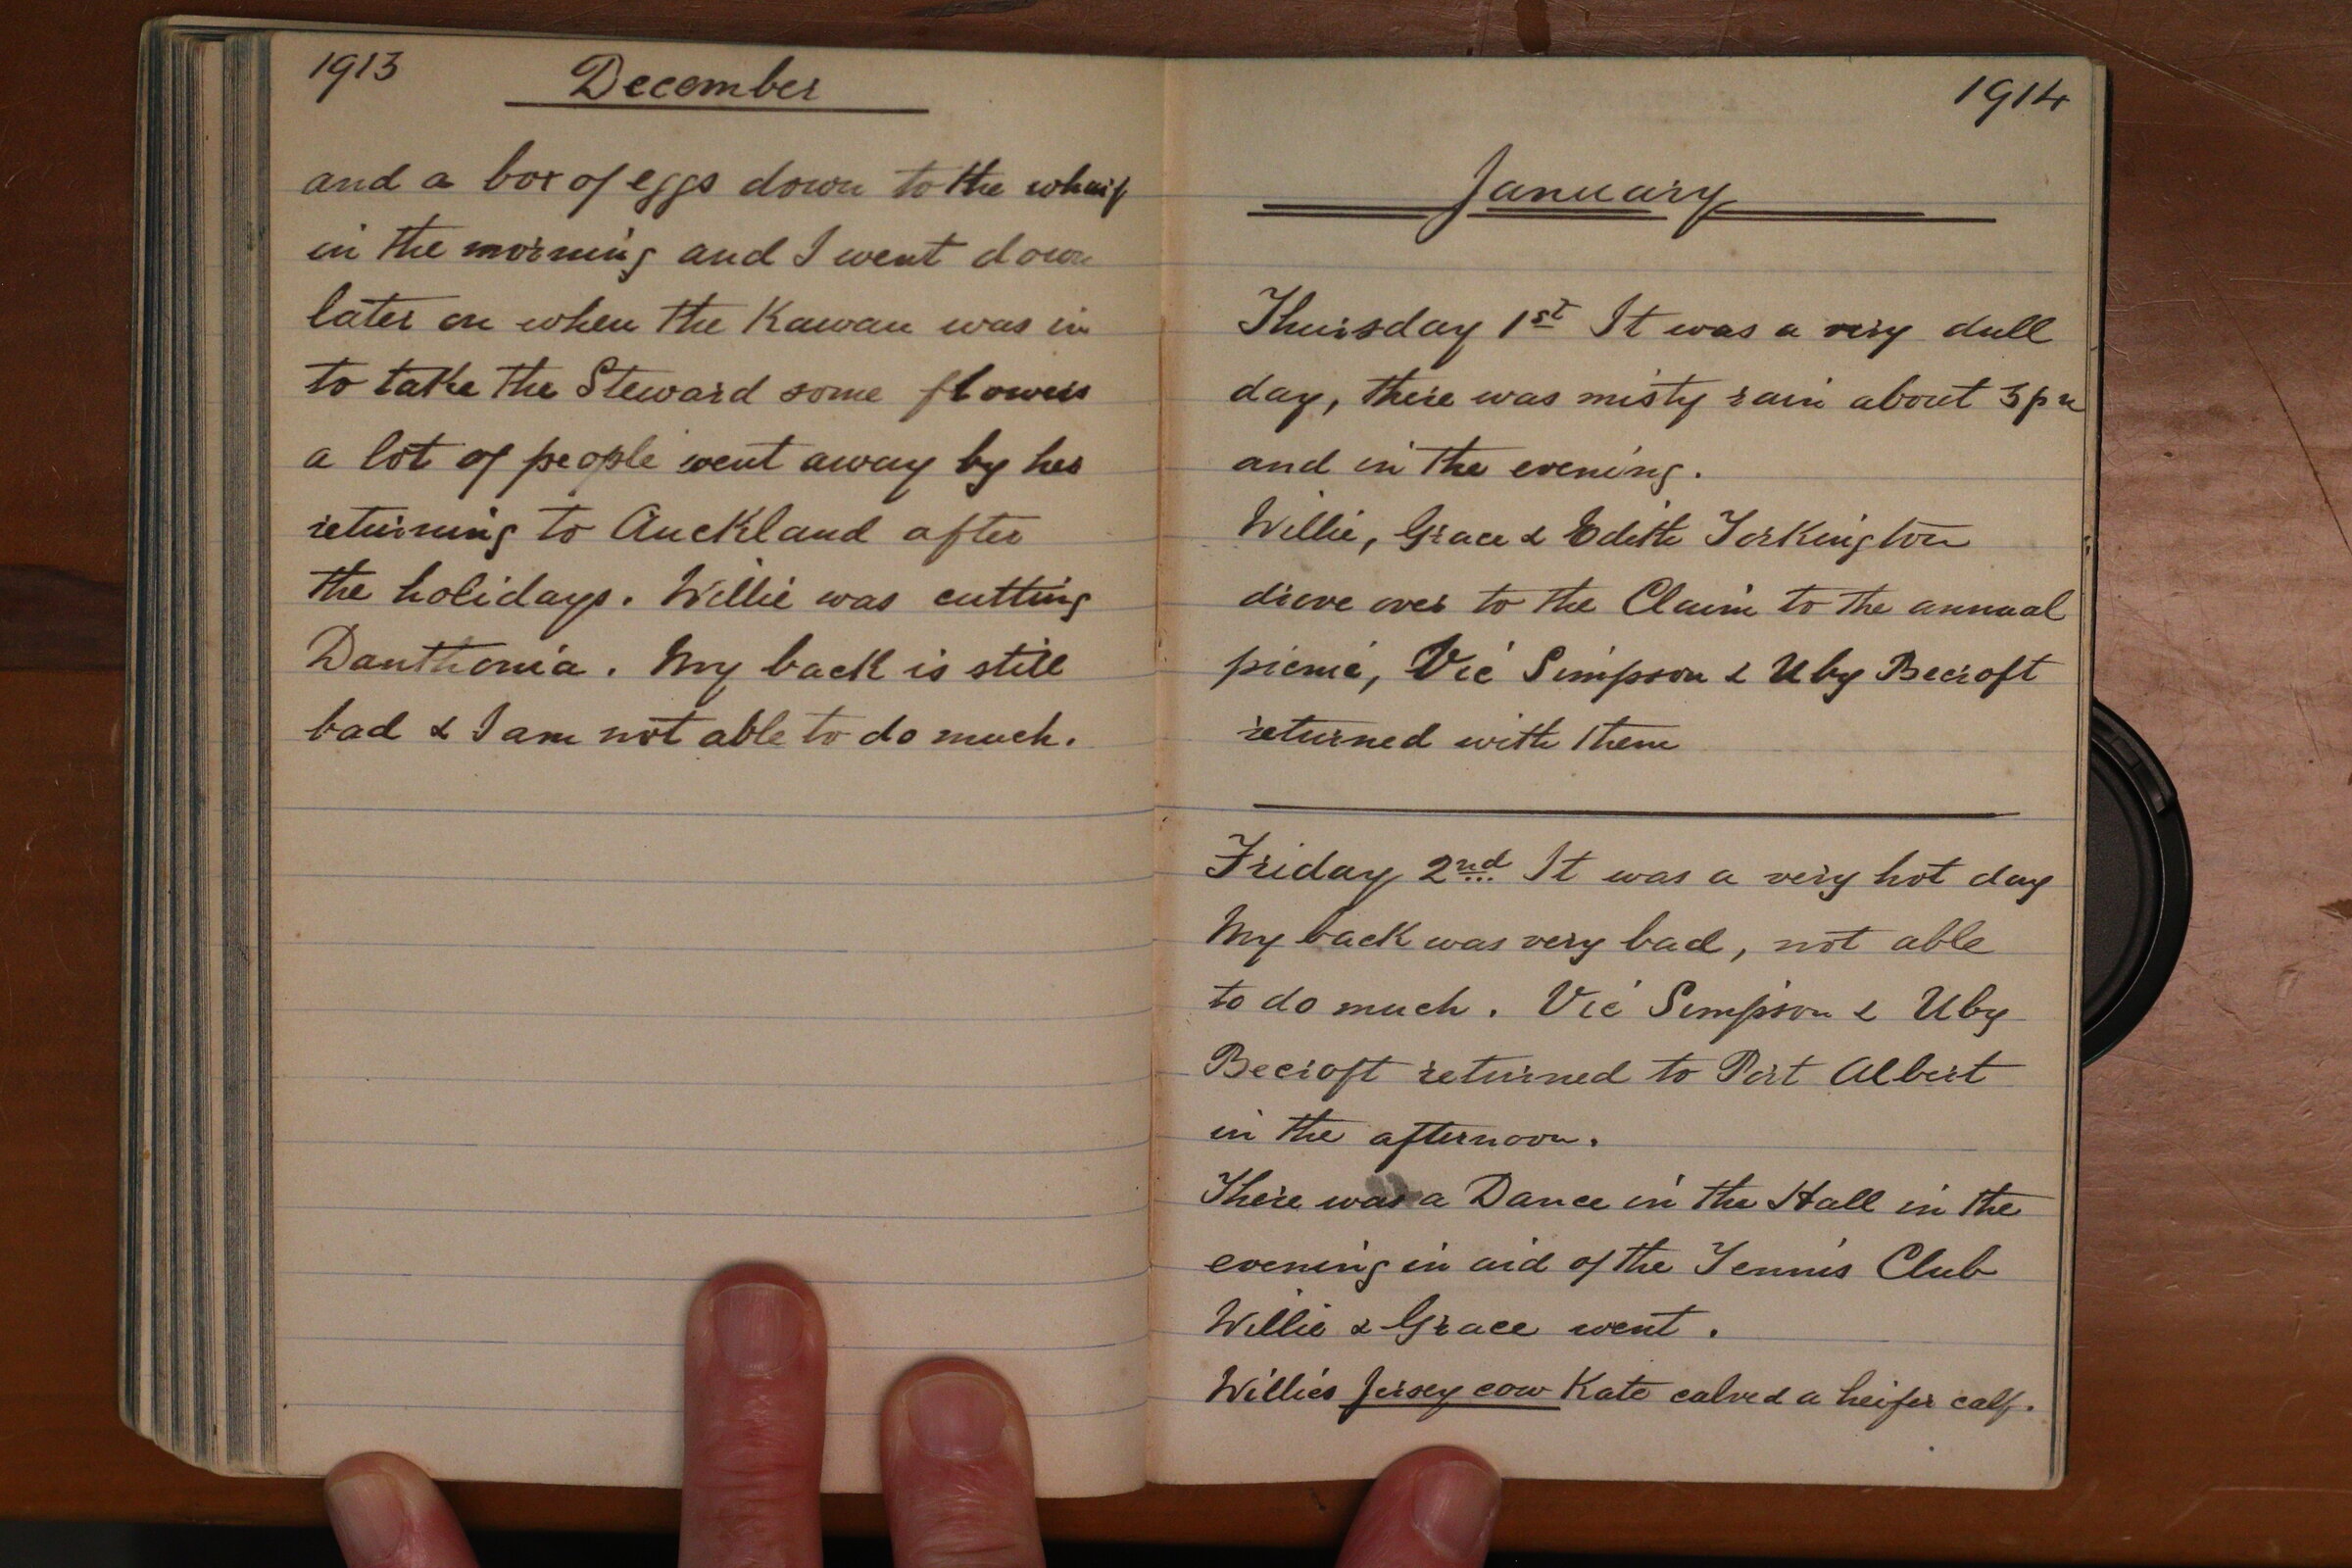 1913
December
and a box of eggs down to the wharf
in the morning and I went down
later on when the Kawau was in
to take the Steward some flowers
a lot of people went away by her
returning to Auckland after
the holidays. Willie was cutting
Danthonia. My back is still
bad & I am not able to do much.
1914
January
Thursday 1st It was a very dull
day, there was misty rain about 3 pm
and in the evening.
Willie, Grace & Edith Torkington
drove over to the Claim to the annual
picnic, Vic Simpson & Uby Becroft
returned with them
Friday 2nd It was a very hot day
My back was very bad, not able
to do much. Vic Simpson & Uby
Becroft returned to Port Albert
in the afternoon.
There was a Dance in the Hall in the
evening in aid of the Tennis Club
Willie & Grace went.
Willies Jersey cow Kate calved a heifer calf.